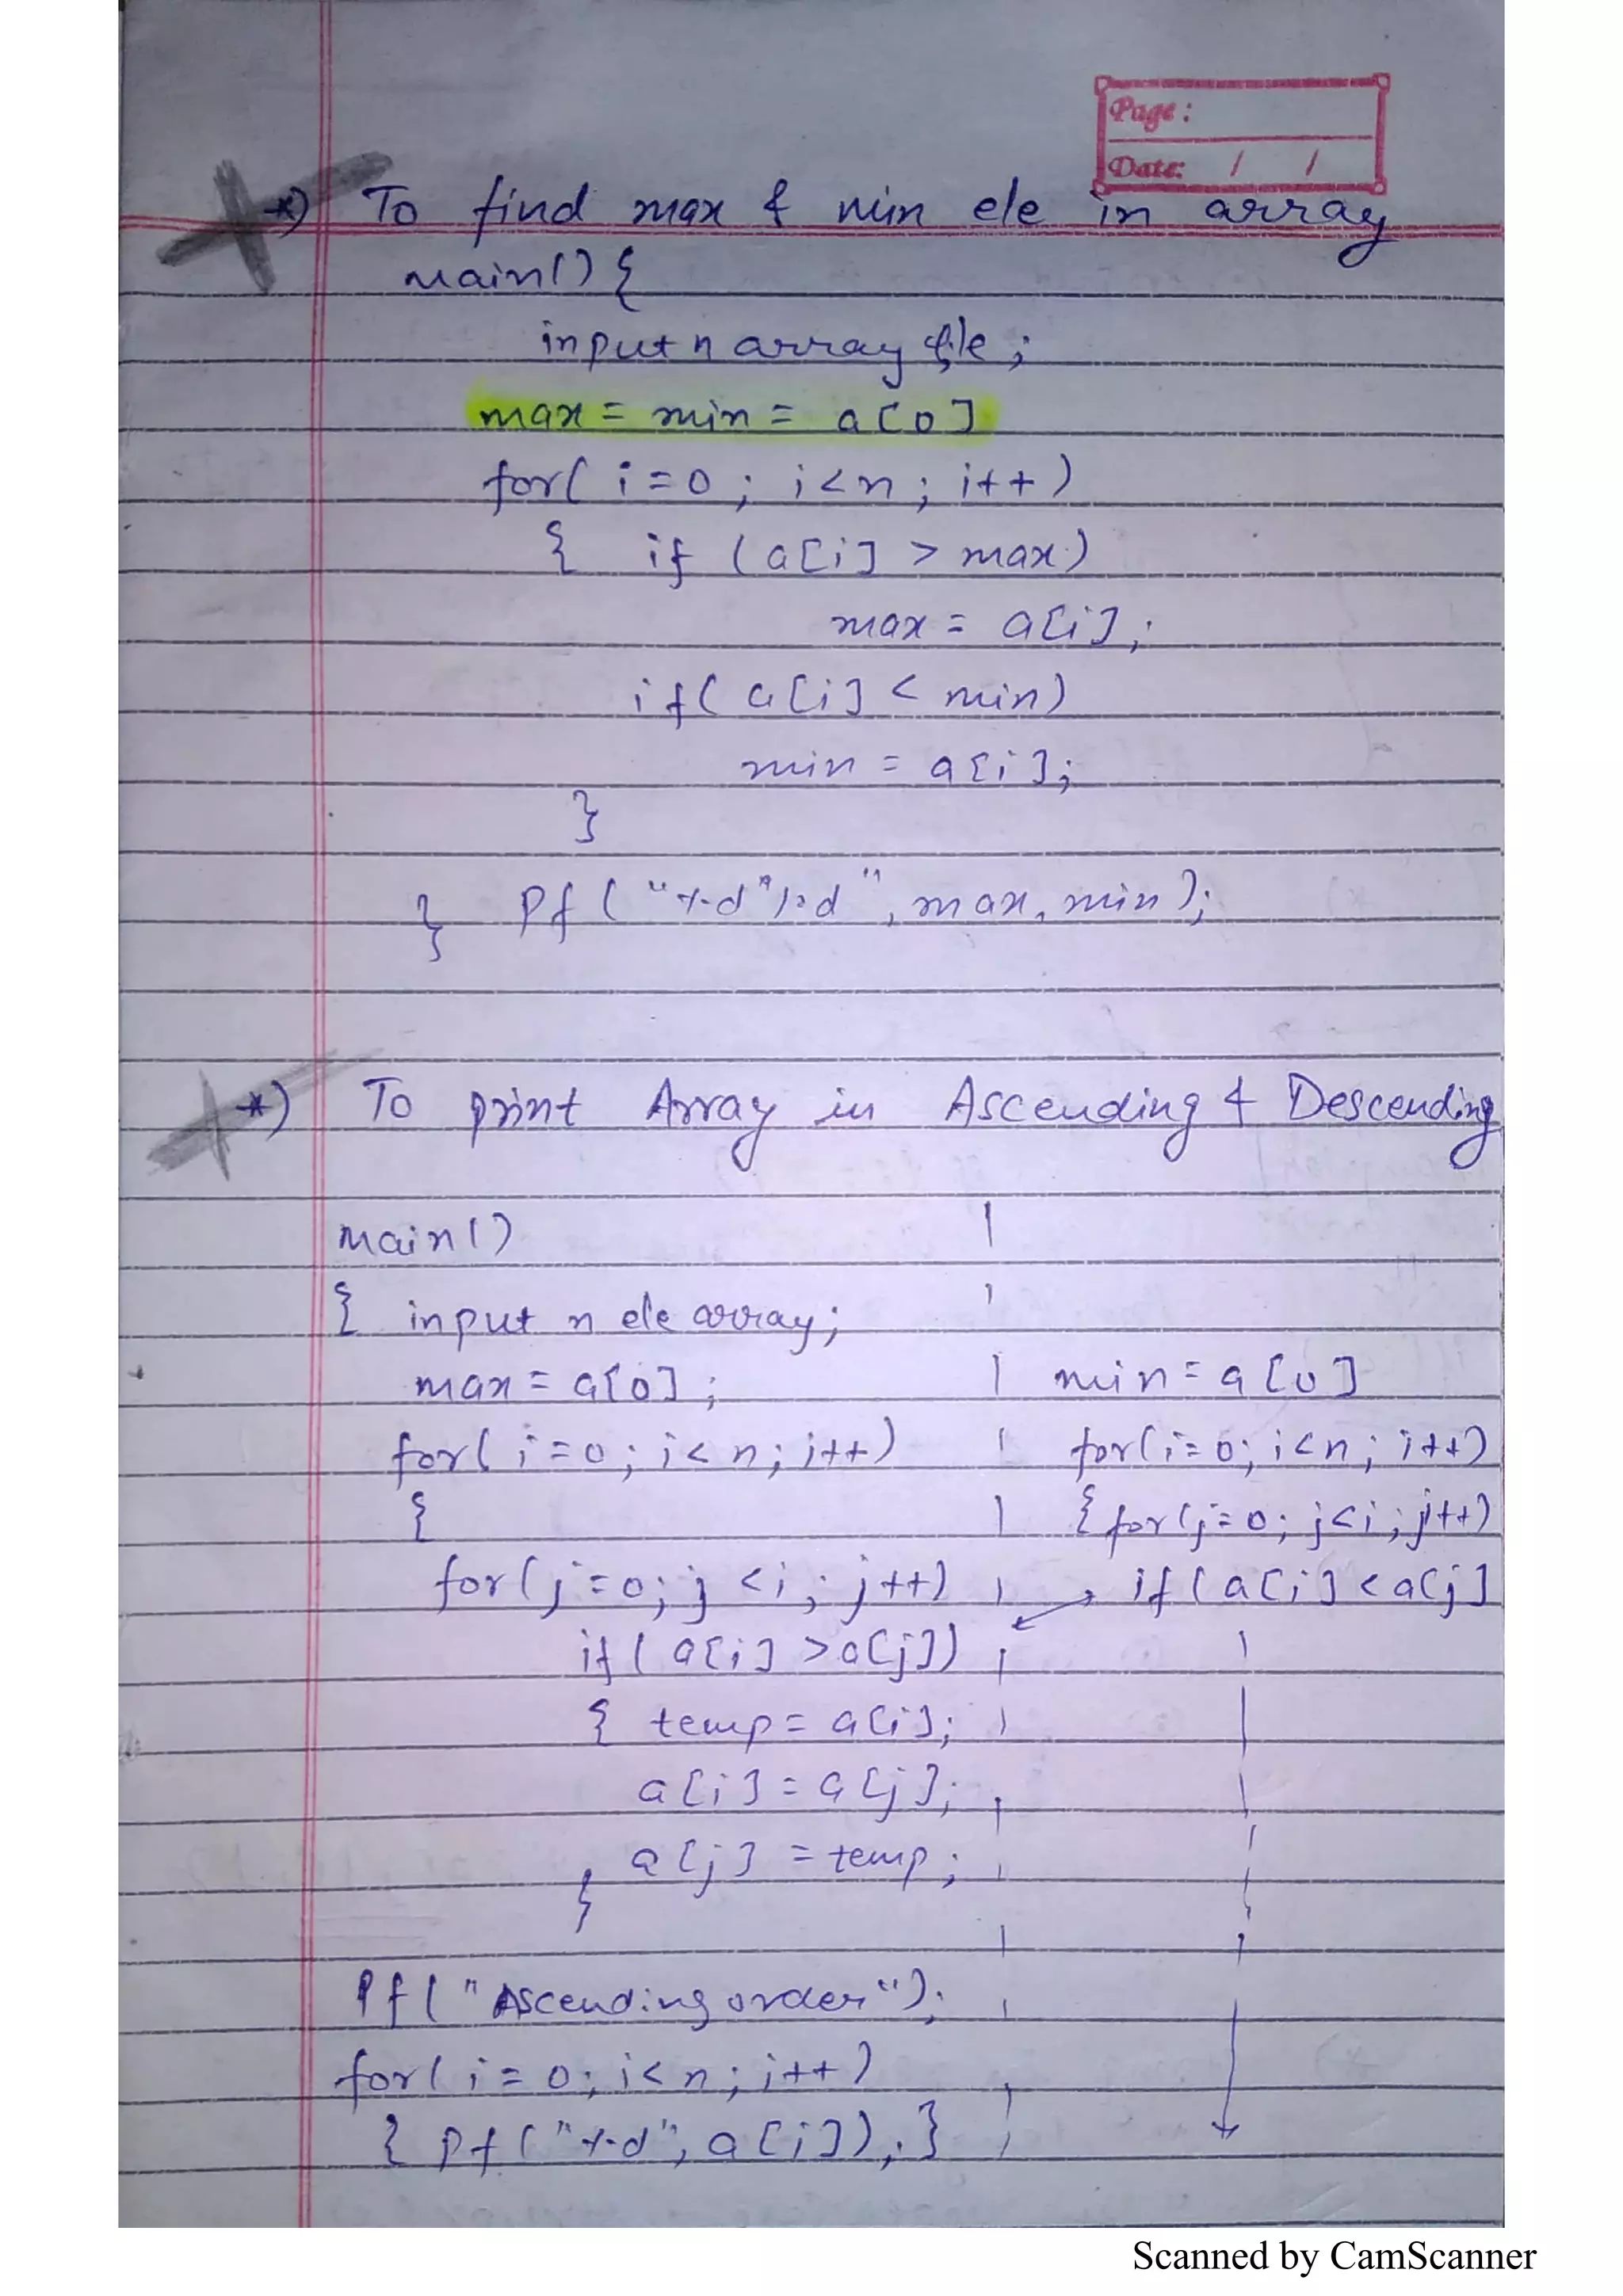 Page:
Date: / /
*) To find max & min ele in array
main() {
input n array ele ;
max = min = a[0]
for( i=0 ; i<n ; i++ )
{ if (a[i] > max)
max = a[i];
if( a[i] < min)
min = a[i];
}
} Pf ( "%d" %d ", max, min );
*) To print Array in Ascending & Descending
main()
{ input n ele array;
max = a[0] ; | min = a[0]
for( i=0 ; i<n ; i++) | for(i=0; i<n ; i++)
{ | { for(j=0; j<i ; j++)
for(j=0; j <i ; j++) | if ( a[i] < a[j]
if ( a[i] > a[j])
{ temp = a[i];
a[i] = a[j];
a[j] = temp ;
}
Pf ( " Ascending order ");
for( i = 0 ; i< n ; i++ )
{ Pf ( "%d", a[i]); }
Scanned by CamScanner